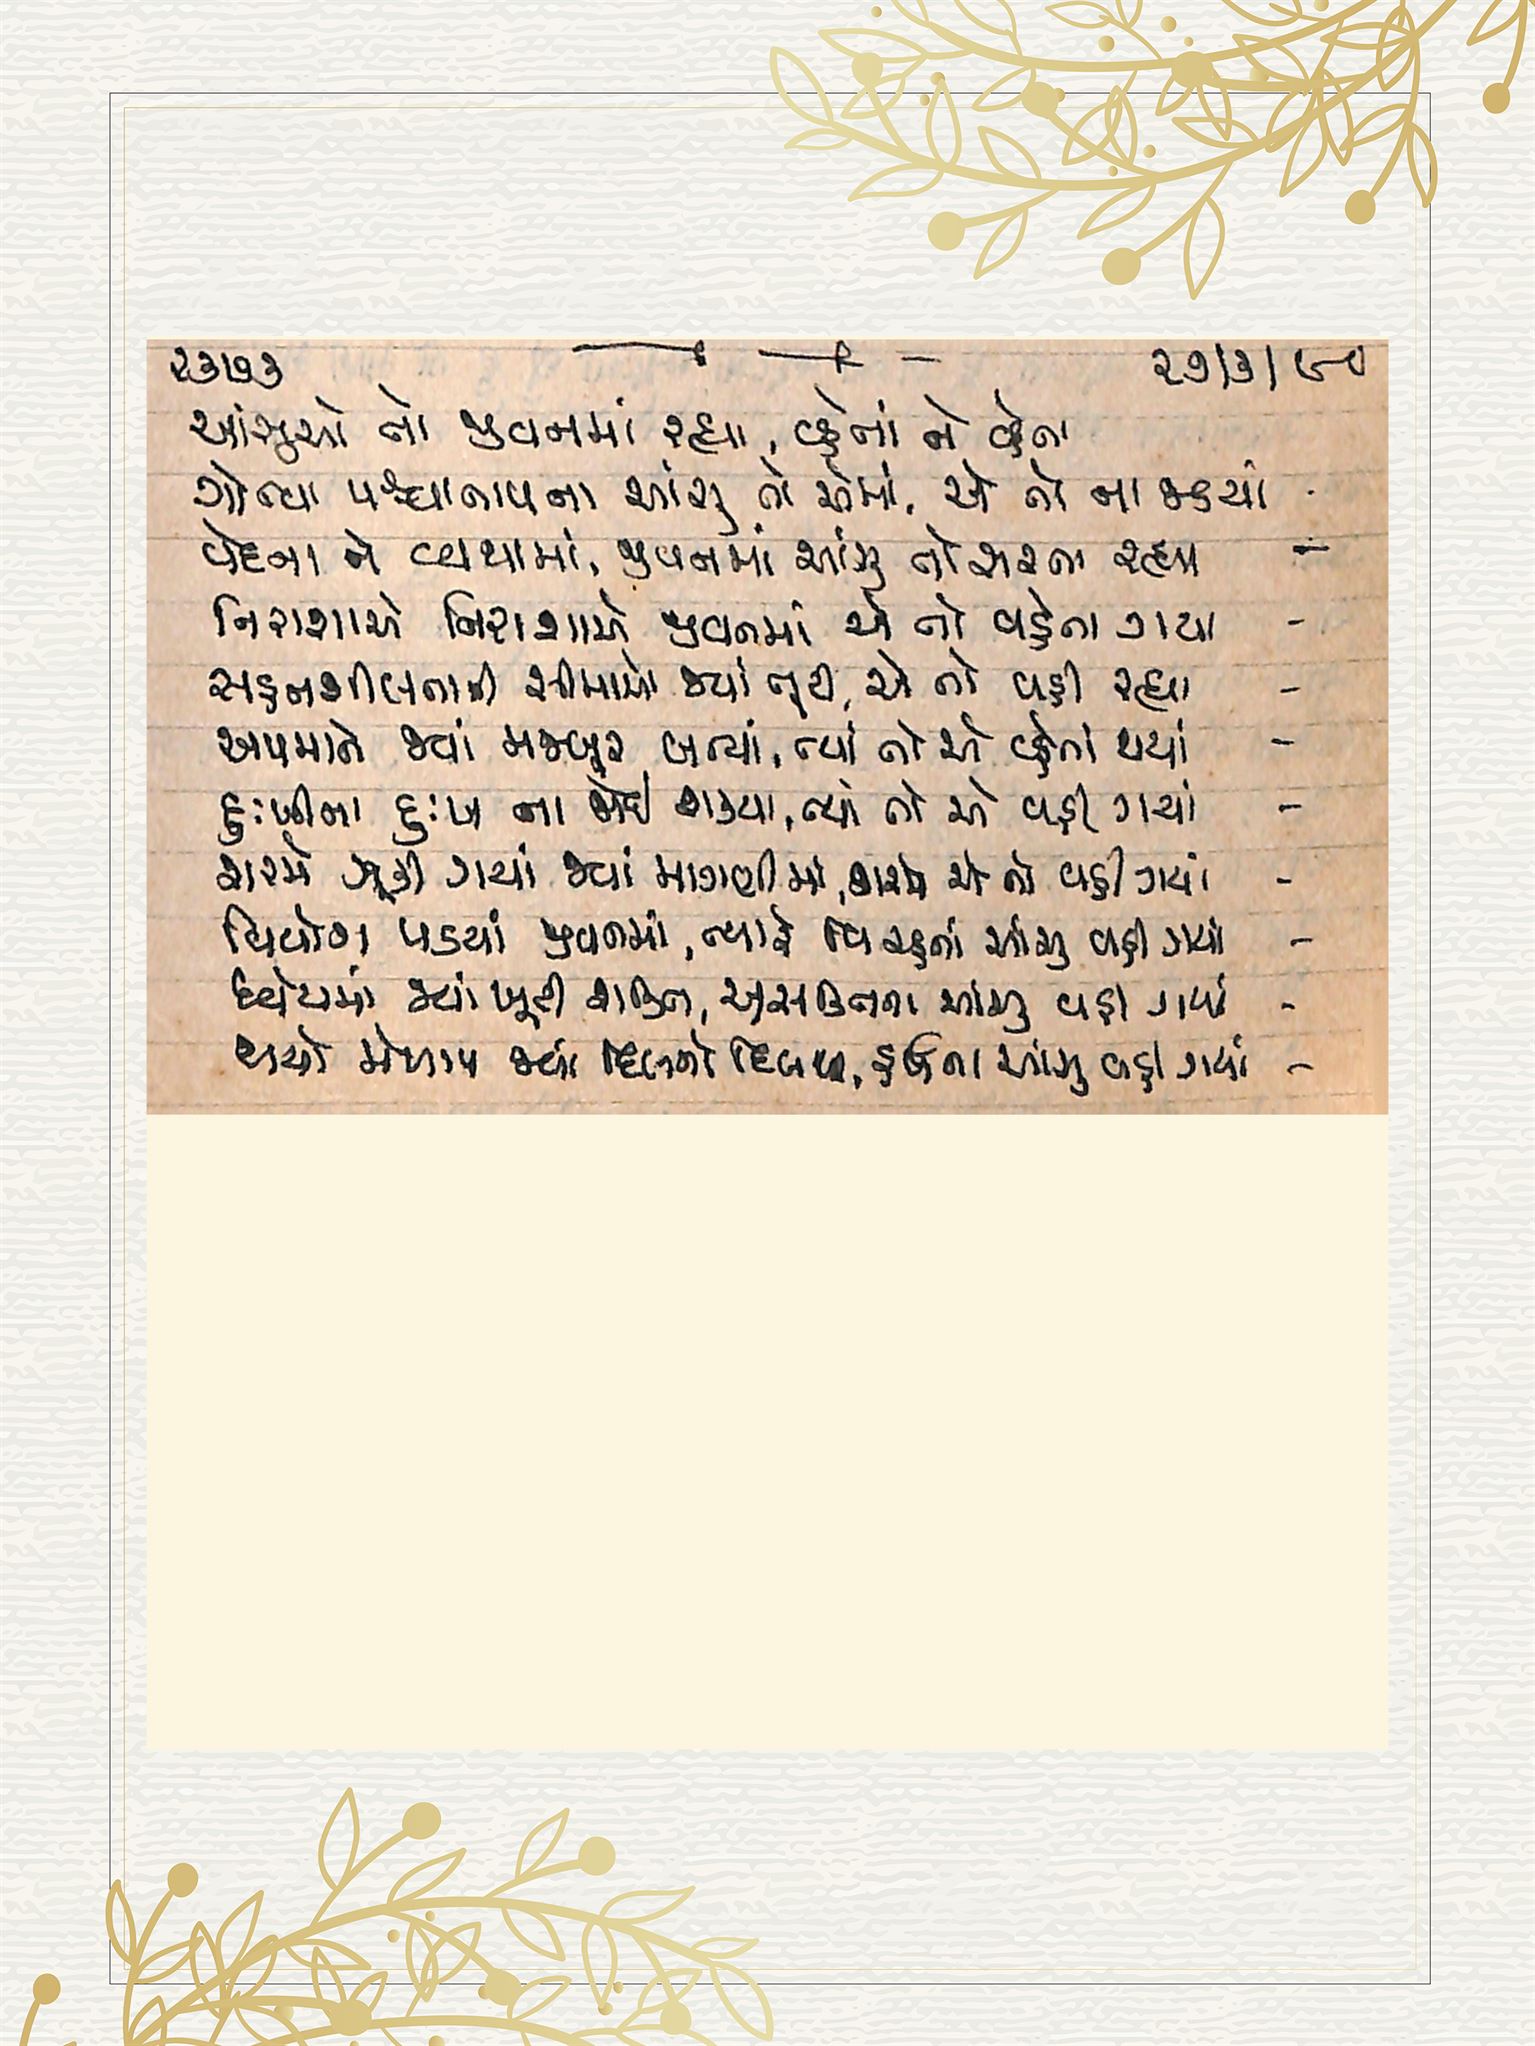 ૨૩૭૩ ૨૭/૩/૯૦
આંસુઓ તો જીવનમાં રહ્યા, વ્હેતાં ને વ્હેતા
ગોત્યા પશ્ચાતાપના આંસુ તો એમાં, એ તો ના જડયાં
વેદના ને વ્યથામાં, જીવનમાં આંસુ તો સરતા રહ્યા -
નિરાશાએ નિરાશાએ જીવનમાં એ તો વહેતા ગયા -
સહનશીલતાની સીમાઓ જ્યાં તૂટી, એ તો વહી રહ્યા -
અપમાને જ્યાં મજબૂર બન્યાં, ત્યાં તો એ વ્હેતાં થયાં -
દુઃખીના દુઃખ ના જોઈ શક્યા, ત્યાં તો એ વહી ગયાં -
શરમે ઝૂકી ગયાં જ્યાં માગણીમાં, એ તો વહી ગયાં -
વિયોગ પડયાં જીવનમાં, ત્યારે વિરહનાં આંસુ વહી ગયાં -
ધ્યેયમાં જ્યાં ખૂટી શક્તિ, અશક્તિના આંસુ વહી ગયાં -
થયો મેળાપ જ્યાં દિલનો દિલથી, હર્ષના આંસુ વહી ગયાં -